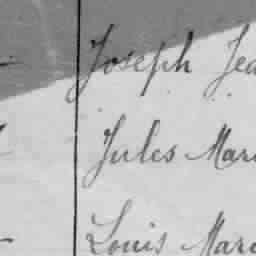 Joseph Jea
Jules Mari
Louis Mari